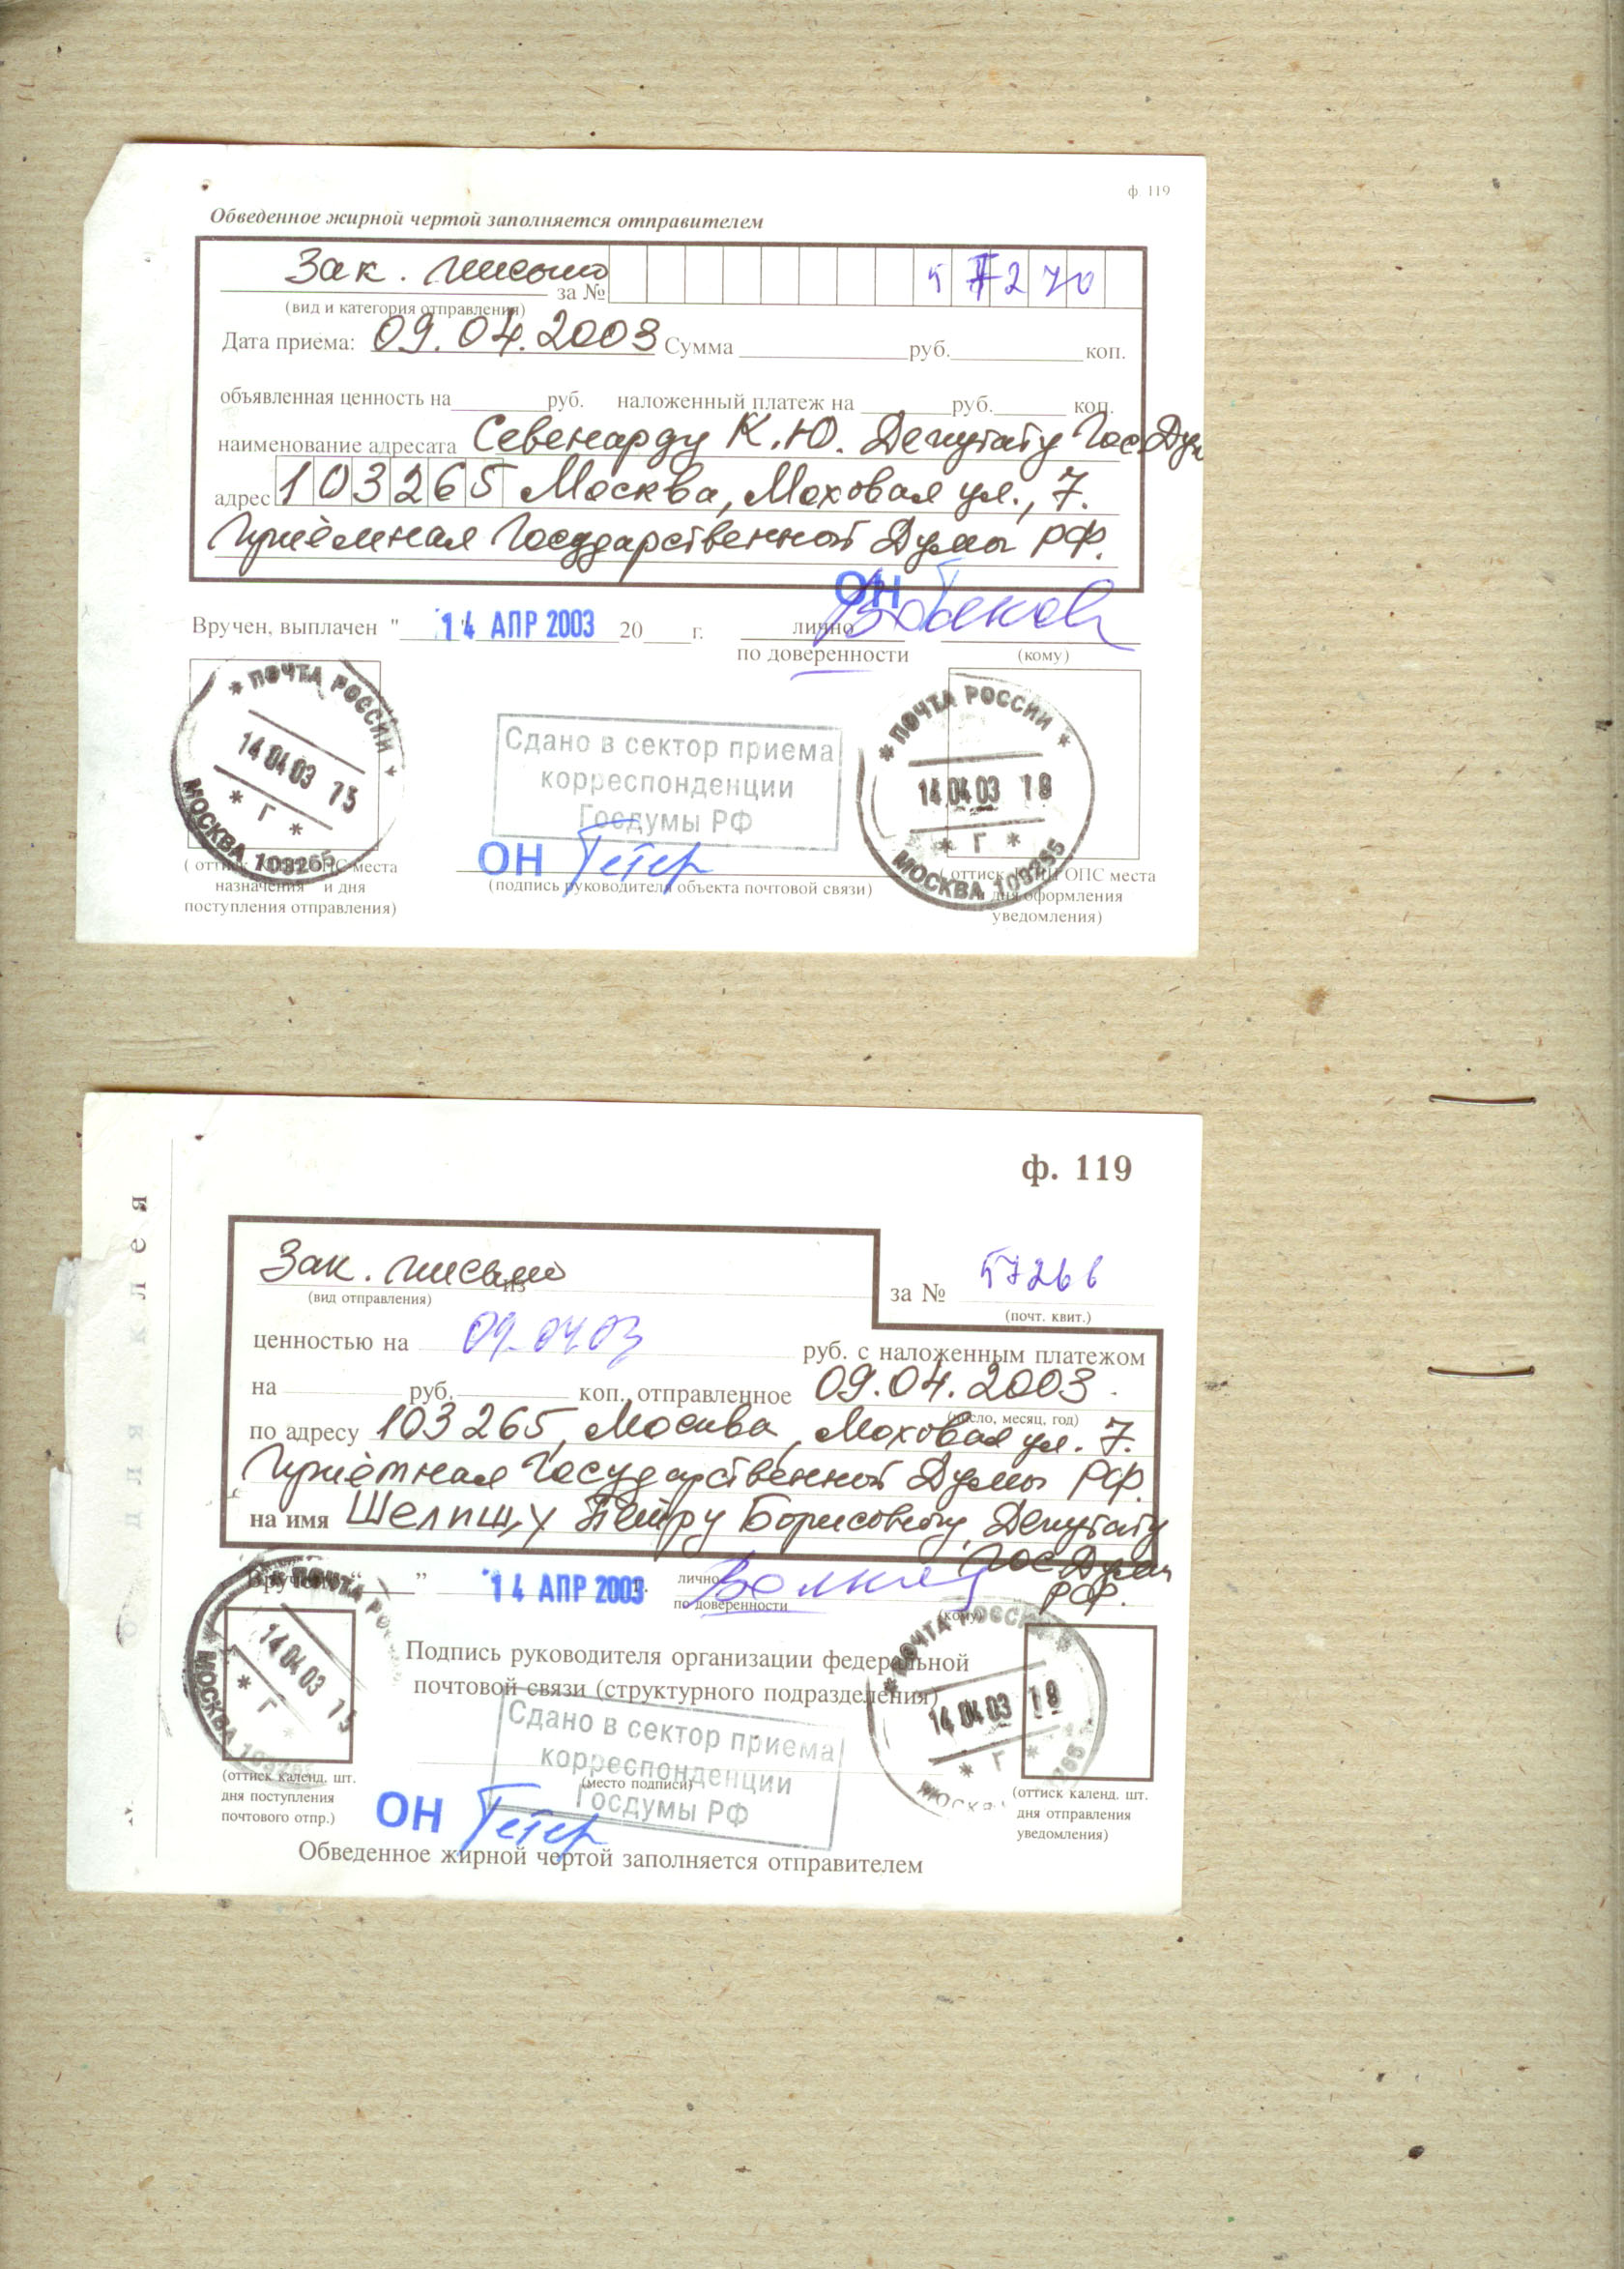 ф. 119
Обведенное жирной чертой заполняется отправителем
Зак. письмо за № 57270
(вид и категория отправления)
Дата приема: 09.04.2003 Сумма руб. коп.
объявленная ценность на руб. наложенный платеж на руб. коп.
наименование адресата Севенарду К.Ю. Депутату Гос Дум
адрес 103265 Москва, Моховая ул., 7.
Приёмная Государственной Думы РФ.
ОН
Вручен, выплачен "14" АПР 2003 20 г. лично
по доверенности (кому)
* ПОЧТА РОССИИ *
14 04 03 15
* Г *
МОСКВА 103265
Сдано в сектор приема
корреспонденции
Госдумы РФ
* ПОЧТА РОССИИ *
14 04 03 18
* Г *
МОСКВА 103265
ОН
(подпись руководителя объекта почтовой связи)
(оттиск ОПС места
назначения и дня
поступления отправления)
(оттиск ОПС места
дня оформления
уведомления)
для клея
ф. 119
Зак. письмо из
(вид отправления)
за № 57266
(почт. квит.)
ценностью на 09.04.03 руб. с наложенным платежом
на руб. коп., отправленное 09.04.2003.
(число, месяц, год)
по адресу 103265, Москва, Моховая ул. 7.
Приёмная Государственной Думы РФ.
на имя Шелищу Петру Борисовичу, Депутату
Гос Думы
РФ.
Вручено “ ” 14 АПР 2003 г. лично
по доверенности (кому)
ПОЧТА РО
14 04 03 15
* Г *
МОСКВА 103265
Подпись руководителя организации федеральной
почтовой связи (структурного подразделения)
Сдано в сектор приема
корреспонденции
Госдумы РФ
(место подписи)
* ПОЧТА РОССИИ
14 04 03 18
* Г *
МОСКВА
(оттиск календ. шт.
дня поступления
почтового отпр.)
ОН
(оттиск календ. шт.
дня отправления
уведомления)
Обведенное жирной чертой заполняется отправителем